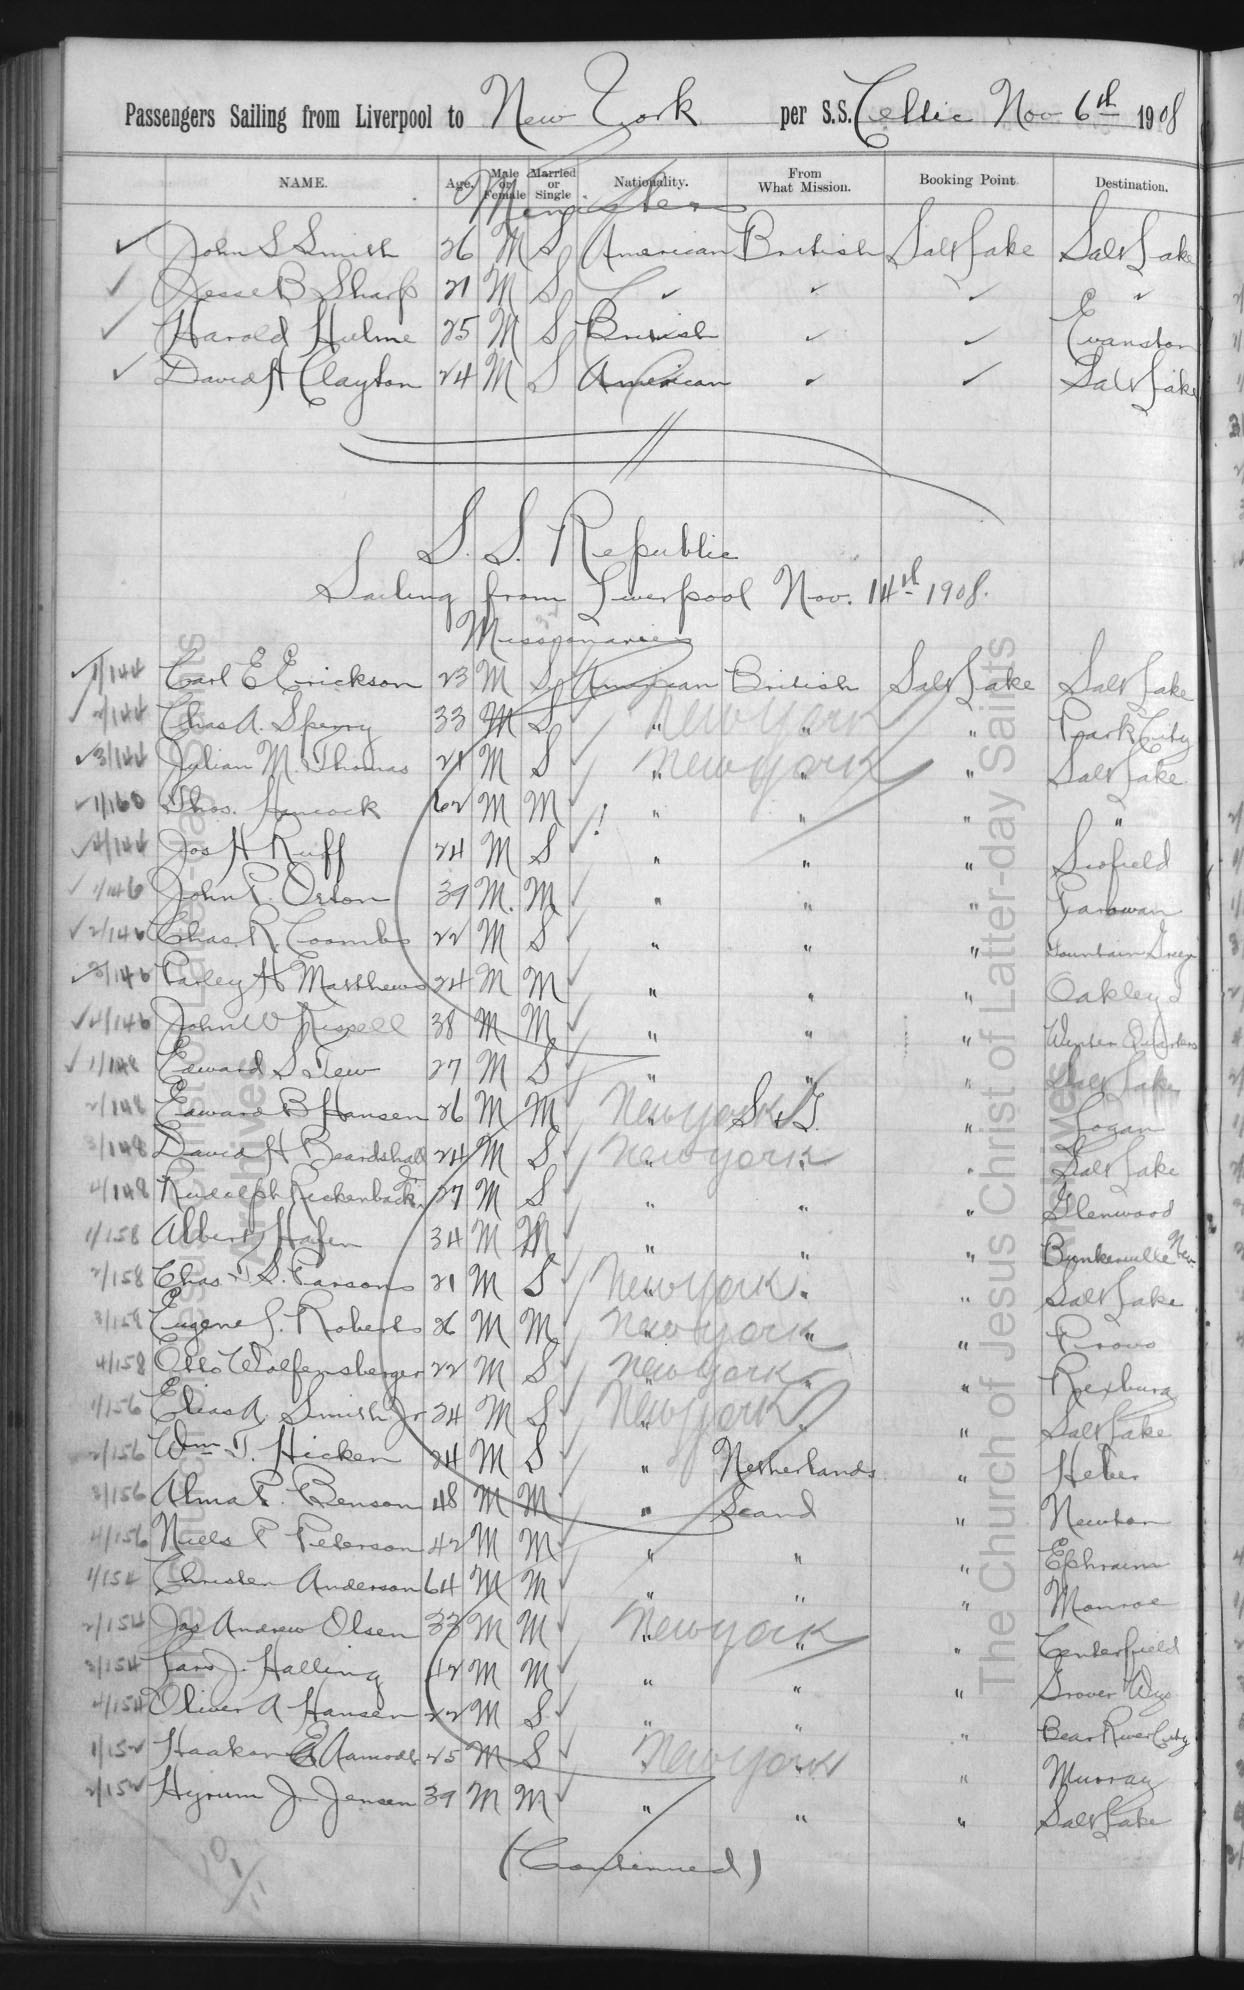 Passengers Sailing from Liverpool to New York per S.S. Celtic Nov 6th 1908
NAME. Age. Male or Female Married or Single Nationality. From What Mission. Booking Point. Destination.
Ministers
John S Smith 26 M S American British Salt Lake Salt Lake
Jesse B Sharp 21 M S " " " "
Harold Hulme 25 M S British " " Evanston
David H Clayton 24 M S American " " Salt Lake
S. S. Republic
Sailing from Liverpool Nov. 14th 1908.
Missionaries
1/144 Carl E Erickson 23 M S American British Salt Lake Salt Lake
2/144 Chas A. Sperry 33 M S " New York " " Park City
3/144 Julian M. Thomas 21 M S " New York " " Salt Lake
1/160 Thos. Hancock 62 M M " " " "
4/144 Jos H Ruff 24 M S " " " Scofield
1/146 John P. Orton 39 M. M " " " Parowan
2/146 Chas. R. Coombs 22 M S " " " Fountain Green
3/146 Parley H Matthews 24 M M " " " Oakley
4/146 John W 38 M M " " " Winter Quarters
1/148 Edward S Tew 27 M S " " " Salt Lake
2/148 Edward B Hansen 26 M M " New York S & G. " Logan
3/148 David H Beardshall 24 M S " New York " " Salt Lake
4/148 Rudolph 27 M S " " " Glenwood
1/158 Albert Hafen 34 M M " " " Bunkerville Nev.
2/158 Chas T S. Parsons 21 M S " New York " " Salt Lake
3/158 Eugene L. Roberts 26 M M " New York " " Provo
4/158 Otto Wolfensberger 22 M S " New York " " Rexburg
1/156 Elias A. Smith Jr 24 M S " New York " " Salt Lake
2/156 Wm T. Hicken 24 M S " Netherlands " Heber
3/156 Alma P. Benson 48 M M " Scand " Newton
4/156 Niels P Peterson 42 M M " " " Ephraim
1/154 Christen Anderson 64 M M " " " Monroe
2/154 Jas Andrew Olsen 33 M M " New York " " Centerfield
3/154 Lars J. Halling 42 M M " " " Grover Wyo
4/154 Oliver A Hansen 22 M S " " " Bear River City
1/152 Haakon E Aamodt 25 M S " New York " " Murray
2/152 Hyrum J. Jensen 39 M M " " " Salt Lake
(Continued)
The Church of Jesus Christ of Latter-day Saints
Archives
The Church of Jesus Christ of Latter-day Saints
Archives